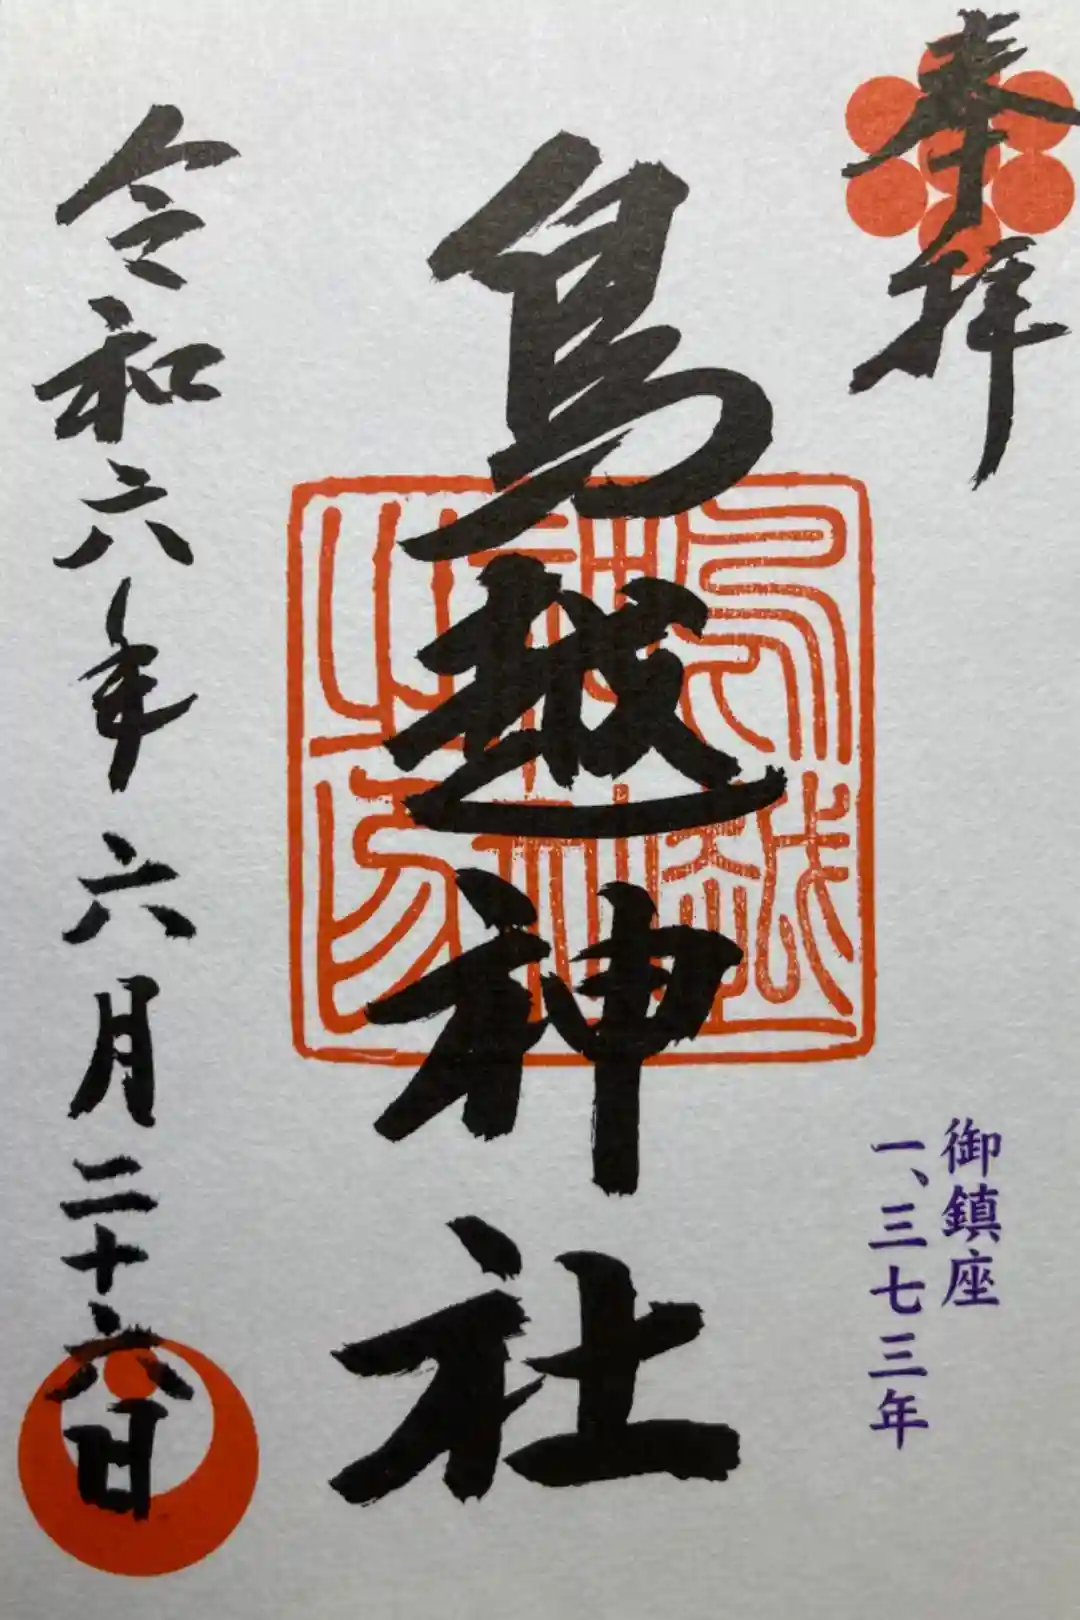 奉拝
御鎮座
一、三七三年
鳥越神社
鳥越神社之印
令和六年六月二十六日